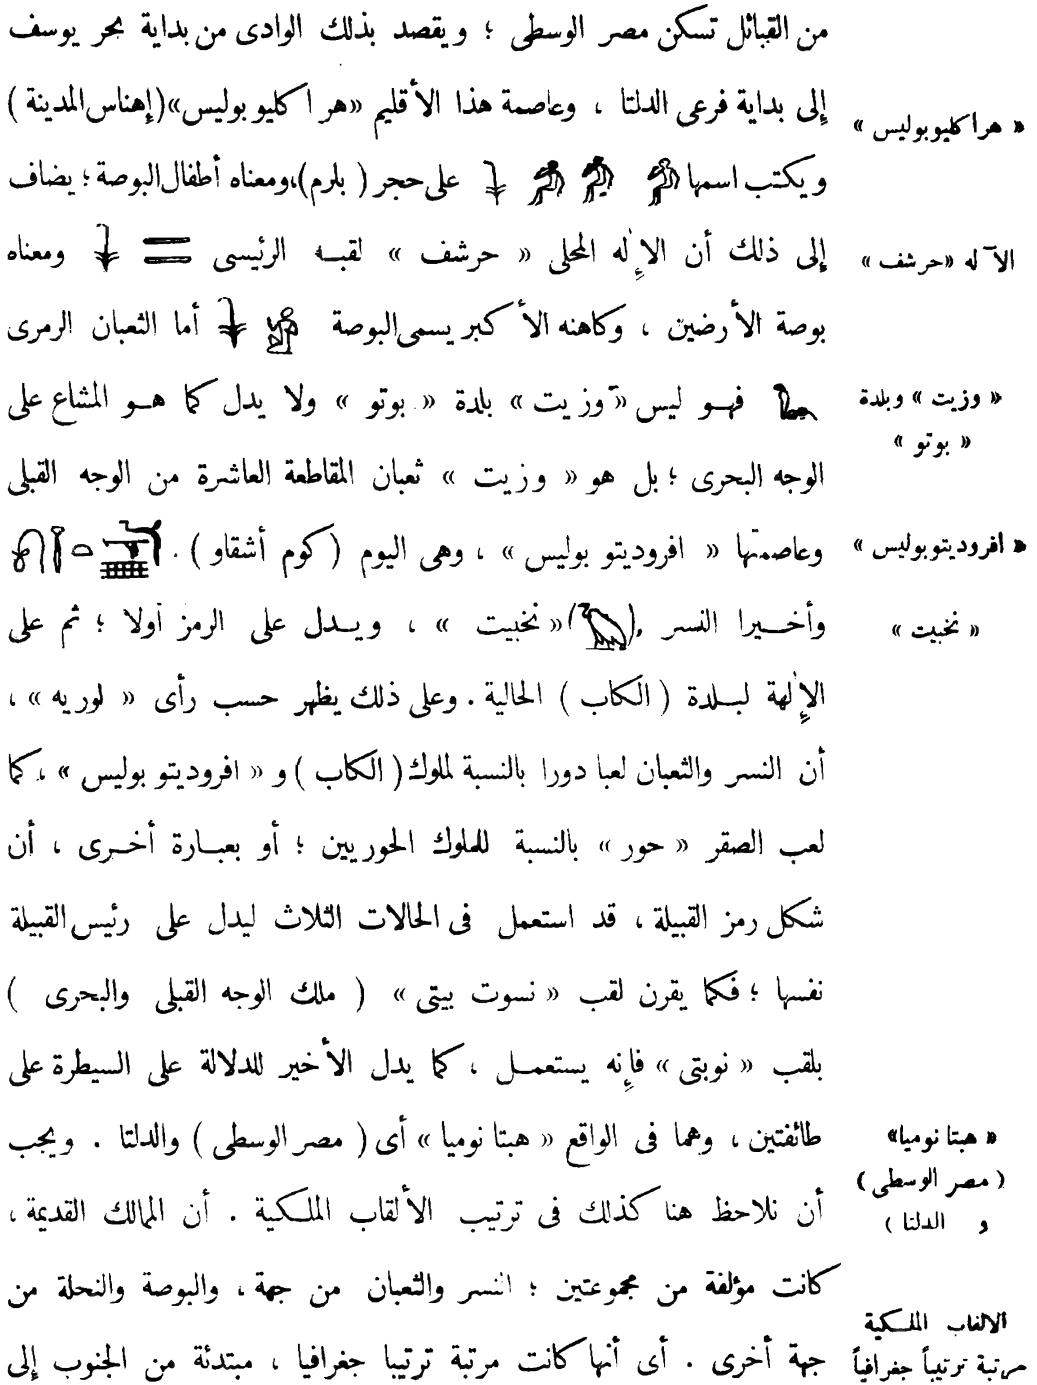 من القبائل تسكن مصر الوسطى ؛ ويقصد بذلك الوادى من بداية بحر يوسف
إلى بداية فرعى الدلتا ، وعاصمة هذا الأقليم «هراكليو بوليس»(إهناس المدينة )
« هراكليوبوليس »
ويكتب اسمها على حجر ( بلرم)،ومعناه أطفال البوصة ؛ يضاف
إلى ذلك أن الإله المحلى « حرشف » لقبه الرئيسى ومعناه
الآله «حرشف »
بوصة الأرضين ، وكاهنه الأكبر يسمى البوصة أما الثعبان الرمزى
فهو ليس «وزيت» بلدة « بوتو » ولا يدل كما هو المشاع على
« وزيت » وبلدة
« بوتو »
الوجه البحرى ؛ بل هو « وزيت » ثعبان المقاطعة العاشرة من الوجه القبلى
وعاصمتها « افروديتو بوليس » ، وهى اليوم ( كوم أشقاو ) .
« افروديتوبوليس »
وأخيرا النسر ( )« نخبيت » ، ويدل على الرمز أولا ؛ ثم على
« نخبيت »
الإلهة لبلدة ( الكاب ) الحالية . وعلى ذلك يظهر حسب رأى « لوريه » ،
أن النسر والثعبان لعبا دورا بالنسبة لملوك ( الكاب ) و « افروديتو بوليس » ، كما
لعب الصقر « حور » بالنسبة للملوك الحوريين ؛ أو بعبارة أخرى ، أن
شكل رمز القبيلة ، قد استعمل فى الحالات الثلاث ليدل على رئيس القبيلة
نفسها ؛ فكما يقرن لقب « نسوت بيتى » ( ملك الوجه القبلى والبحرى )
بلقب « نوبتى » فإنه يستعمل ، كما يدل الأخير للدلالة على السيطرة على
طائفتين ، وهما فى الواقع « هبتا نوميا » أى ( مصر الوسطى ) والدلتا . ويجب
« هبتا نوميا»
( مصر الوسطى )
و الدلتا )
أن نلاحظ هنا كذلك فى ترتيب الألقاب الملكية . أن الممالك القديمة ،
كانت مؤلفة من مجموعتين ؛ النسر والثعبان من جهة ، والبوصة والنحلة من
الالقاب الملكية
جهة أخرى . أى أنها كانت مرتبة ترتيبا جغرافيا ، مبتدئة من الجنوب إلى
مرتبة ترتيباً جغرافياً